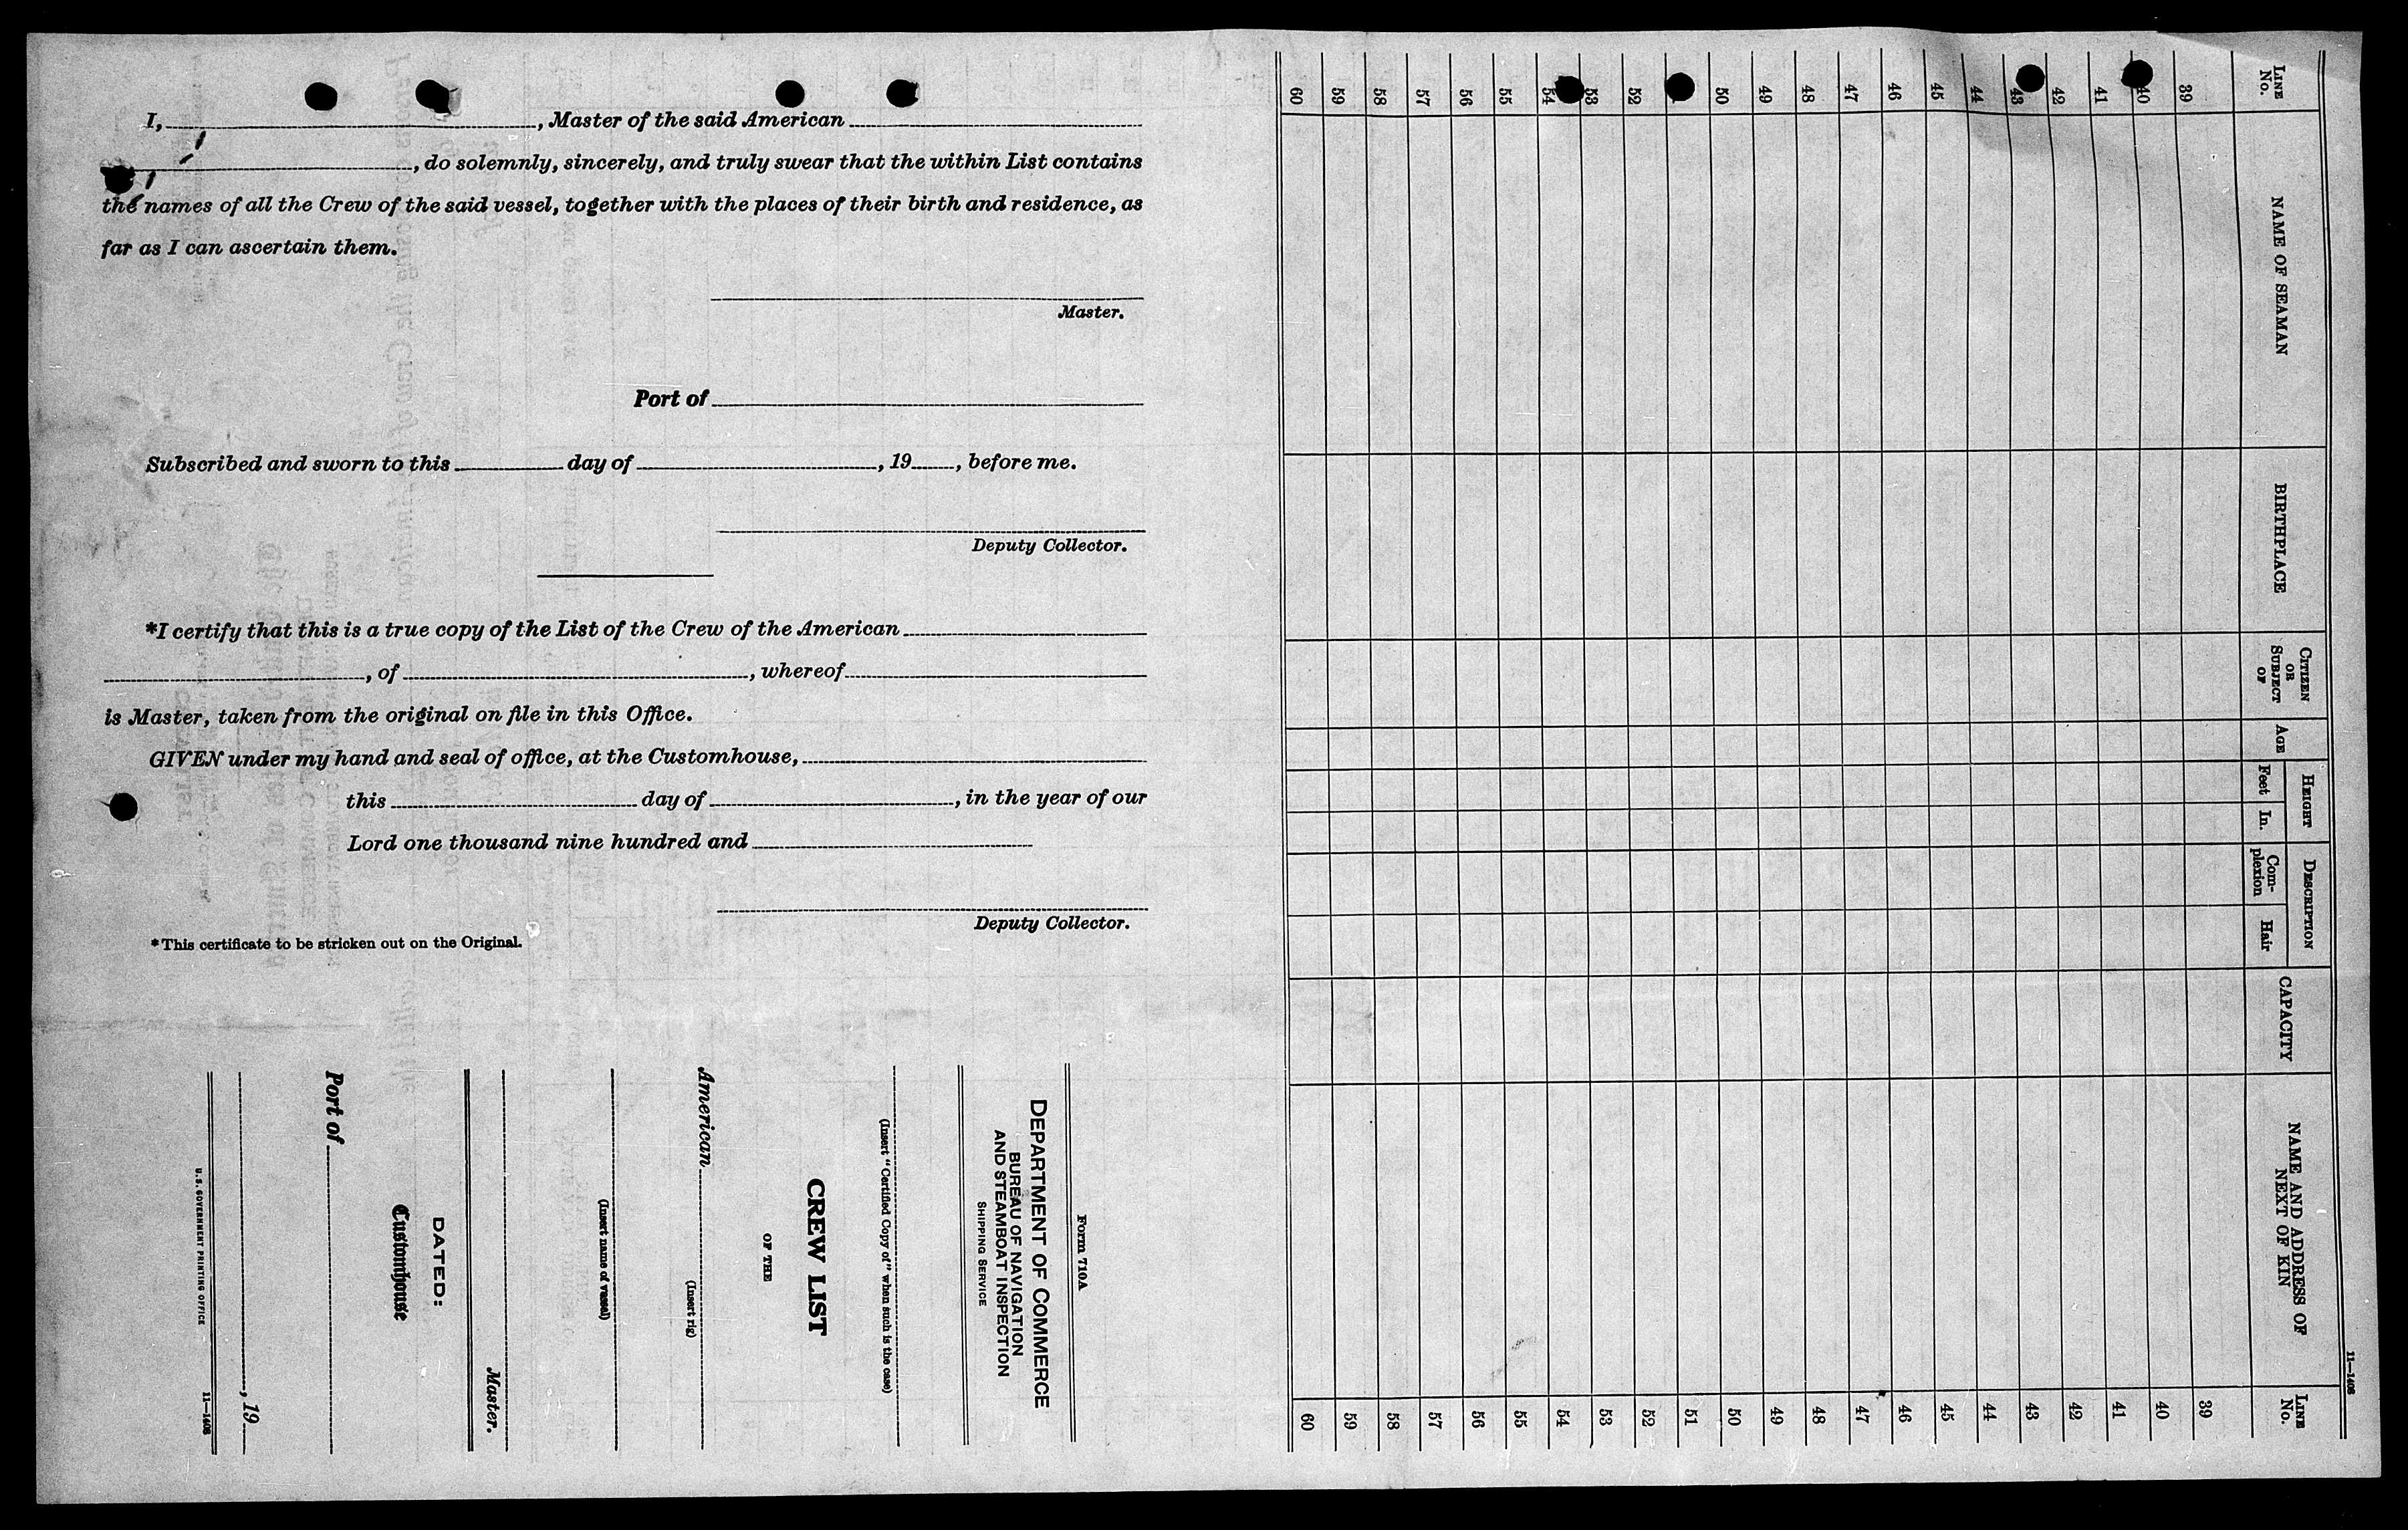 I, , Master of the said American
, do solemnly, sincerely, and truly swear that the within List contains
the names of all the Crew of the said vessel, together with the places of their birth and residence, as
far as I can ascertain them.
Master.
Port of
Subscribed and sworn to this day of , 19 , before me.
Deputy Collector.
*I certify that this is a true copy of the List of the Crew of the American
, of , whereof
is Master, taken from the original on file in this Office.
GIVEN under my hand and seal of office, at the Customhouse,
this day of , in the year of our
Lord one thousand nine hundred and
Deputy Collector.
*This certificate to be stricken out on the Original.
Form 710A
DEPARTMENT OF COMMERCE
BUREAU OF NAVIGATION
AND STEAMBOAT INSPECTION
SHIPPING SERVICE
(Insert "Certified Copy of" when such is the case)
CREW LIST
OF THE
American
(Insert rig)
(Insert name of vessel)
Master.
DATED:
Customhouse
Port of
, 19
U.S. GOVERNMENT PRINTING OFFICE 11—1408
11—1408
LINE No. NAME OF SEAMAN BIRTHPLACE CITIZEN OR SUBJECT OF AGE HEIGHT Feet In. DESCRIPTION Complexion Hair CAPACITY NAME AND ADDRESS OF NEXT OF KIN LINE No.
39 39
40 40
41 41
42 42
43 43
44 44
45 45
46 46
47 47
48 48
49 49
50 50
51
52 52
53 53
54 54
55 55
56 56
57 57
58 58
59 59
60 60